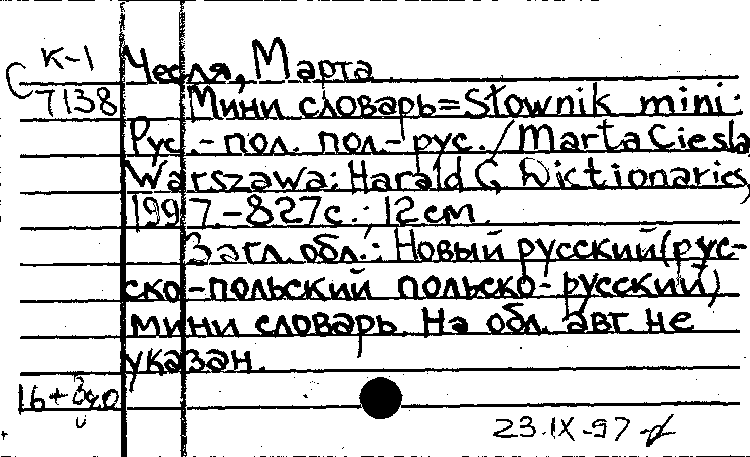 К-1 Чесля, Марта
С 7138 Мини словарь=Słownik mini:
Рус.-пол. пол.-рус./Marta Ciesla
Warszawa: Harald G Dictionaries,
1997.-827с.; 12см.
Загл. обл.: Новый русский(рус-
ско-польский польско-русский)
мини словарь. На обл. авт. не
указан.
16+
23.IX-97